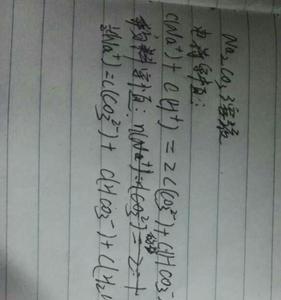 Na2CO3溶液
电荷守恒:
C(Na⁺) + C(H⁺) = 2C(CO3²⁻) + C(HCO3⁻
物料守恒: n(Na⁺):n(CO3²⁻) = 2:1
C(Na⁺) = C(CO3²⁻) + C(HCO3⁻) + C(H2